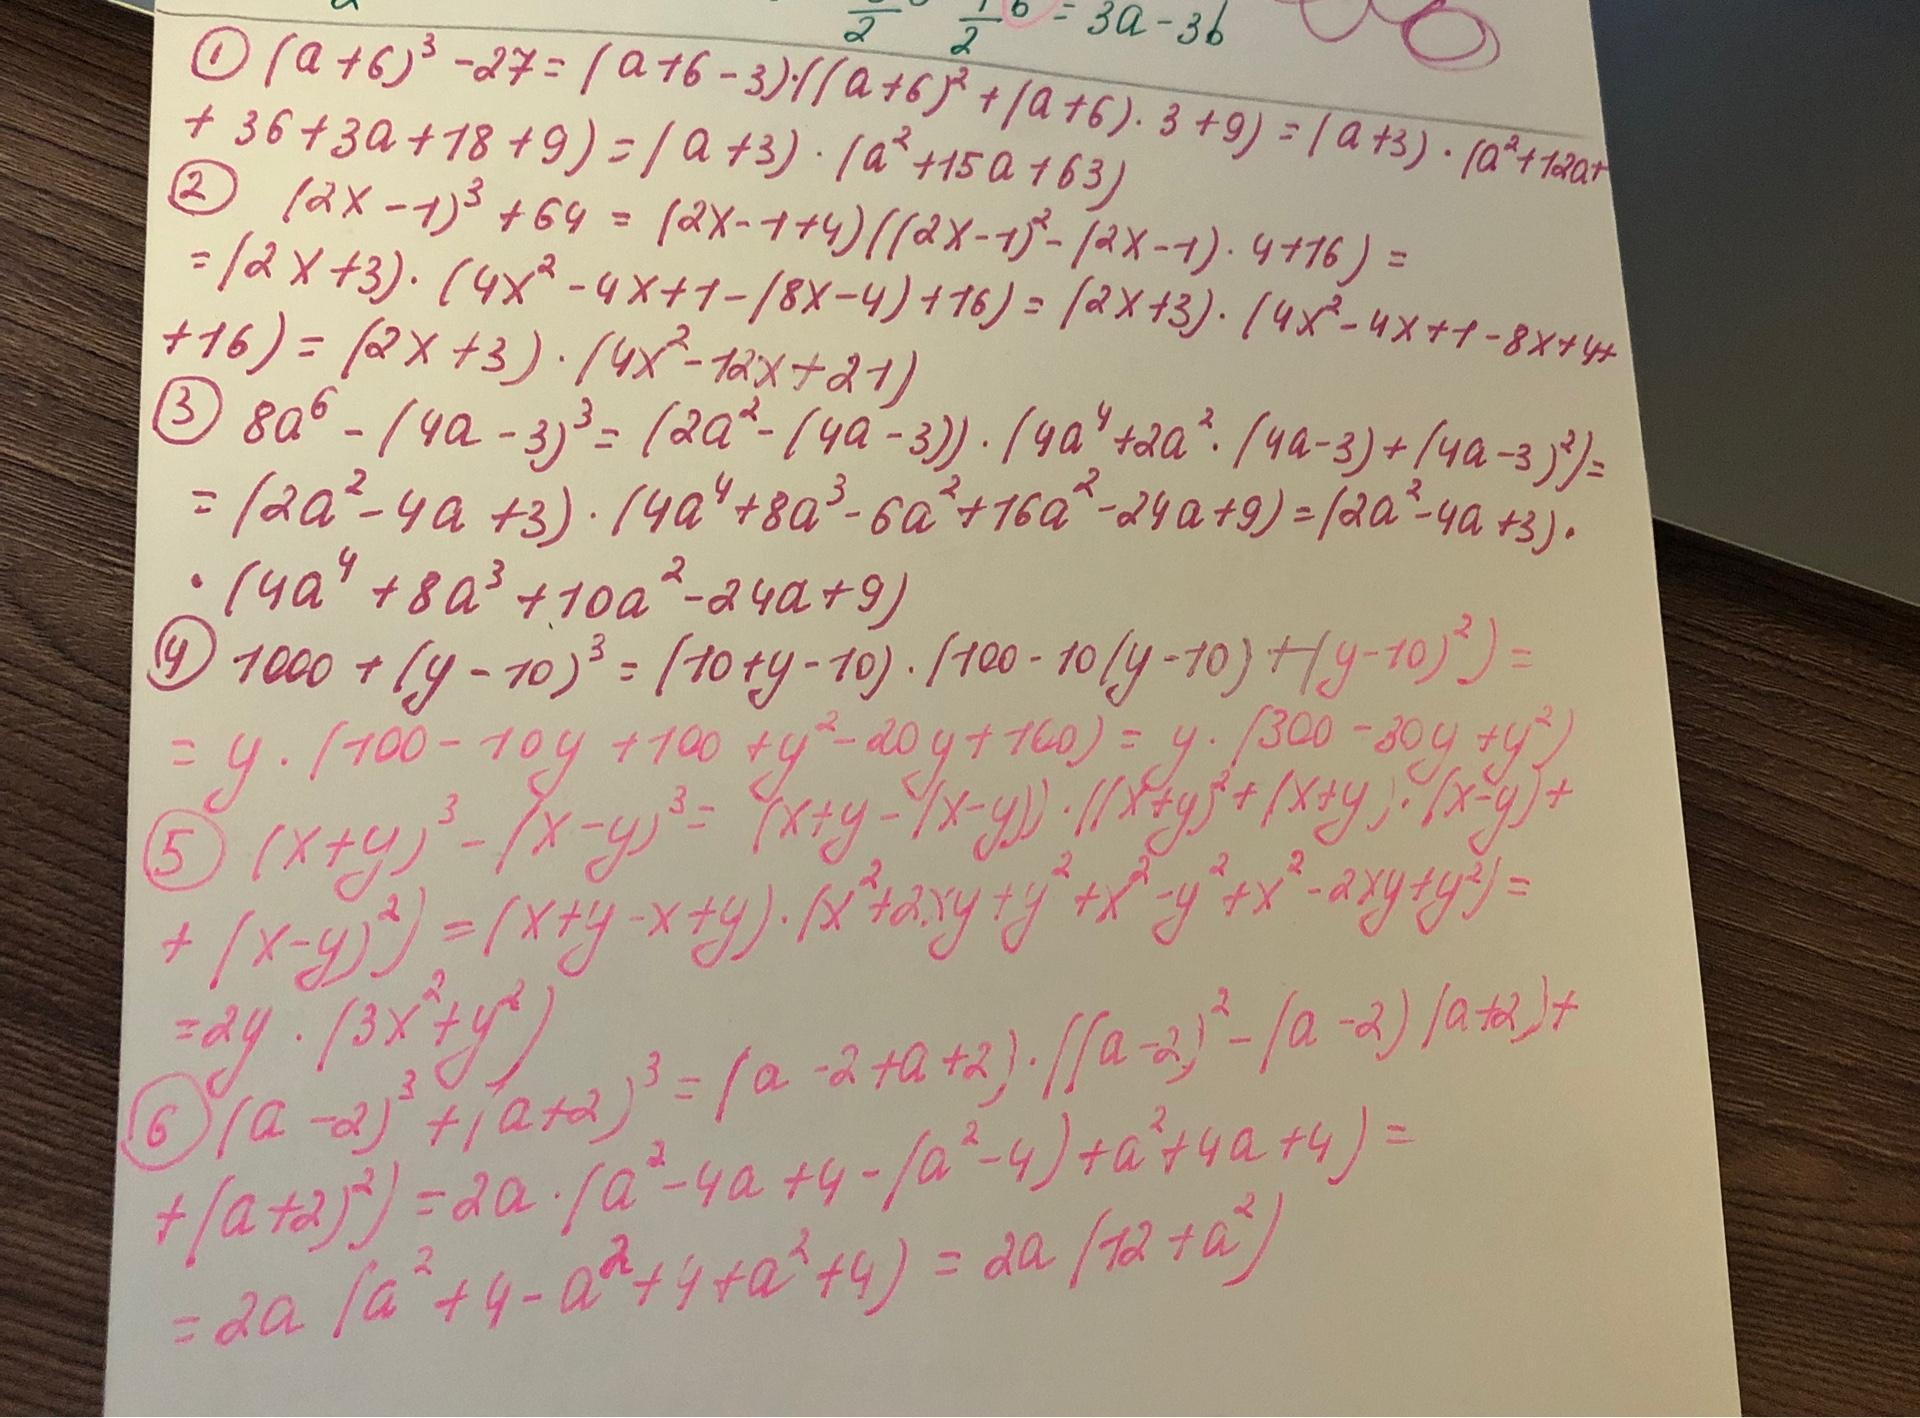 2 2 b = 3a - 3b
① (a+6)³ - 27 = (a+6-3)·((a+6)² + (a+6)·3+9) = (a+3)·(a²+12a+
+ 36+3a+18+9) = (a+3)·(a²+15a+63)
② (2x-1)³ + 64 = (2x-1+4)((2x-1)² - (2x-1)·4+16) =
= (2x+3)·(4x²-4x+1-(8x-4)+16) = (2x+3)·(4x²-4x+1-8x+4+
+16) = (2x+3)·(4x²-12x+21)
③ 8a⁶ - (4a-3)³ = (2a²-(4a-3))·(4a⁴+2a²·(4a-3)+(4a-3)²) =
= (2a²-4a+3)·(4a⁴+8a³-6a²+16a²-24a+9) = (2a²-4a+3)·
·(4a⁴+8a³+10a²-24a+9)
④ 1000 + (y-10)³ = (10+y-10)·(100-10(y-10)+(y-10)²) =
= y·(100-10y+100+y²-20y+100) = y·(300-30y+y²)
⑤ (x+y)³ - (x-y)³ = (x+y-(x-y))·((x+y)²+(x+y)·(x-y)+
+ (x-y)²) = (x+y-x+y)·(x²+2xy+y²+x²-y²+x²-2xy+y²) =
= 2y·(3x²+y²)
⑥ (a-2)³ + (a+2)³ = (a-2+a+2)·((a-2)²-(a-2)(a+2)+
+(a+2)²) = 2a·(a²-4a+4-(a²-4)+a²+4a+4) =
= 2a (a²+4-a²+4+a²+4) = 2a (12+a²)